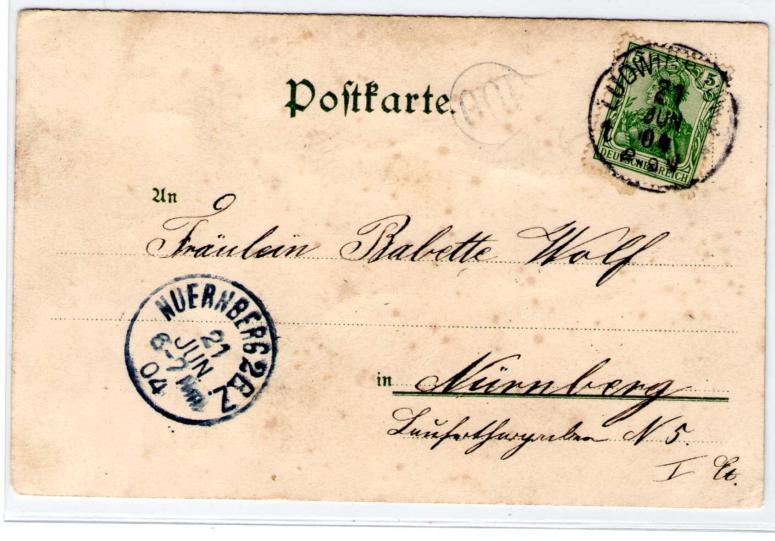 Postkarte.
LUDWIGS
21
JUN
04
5
DEUTSCHES REICH
An
Fräulein Babette Wolf
NUERNBERG 2 B.Z.
21
JUN
6-7 Nm
04
in Nürnberg
Laufertorgraben N 5.
I St.